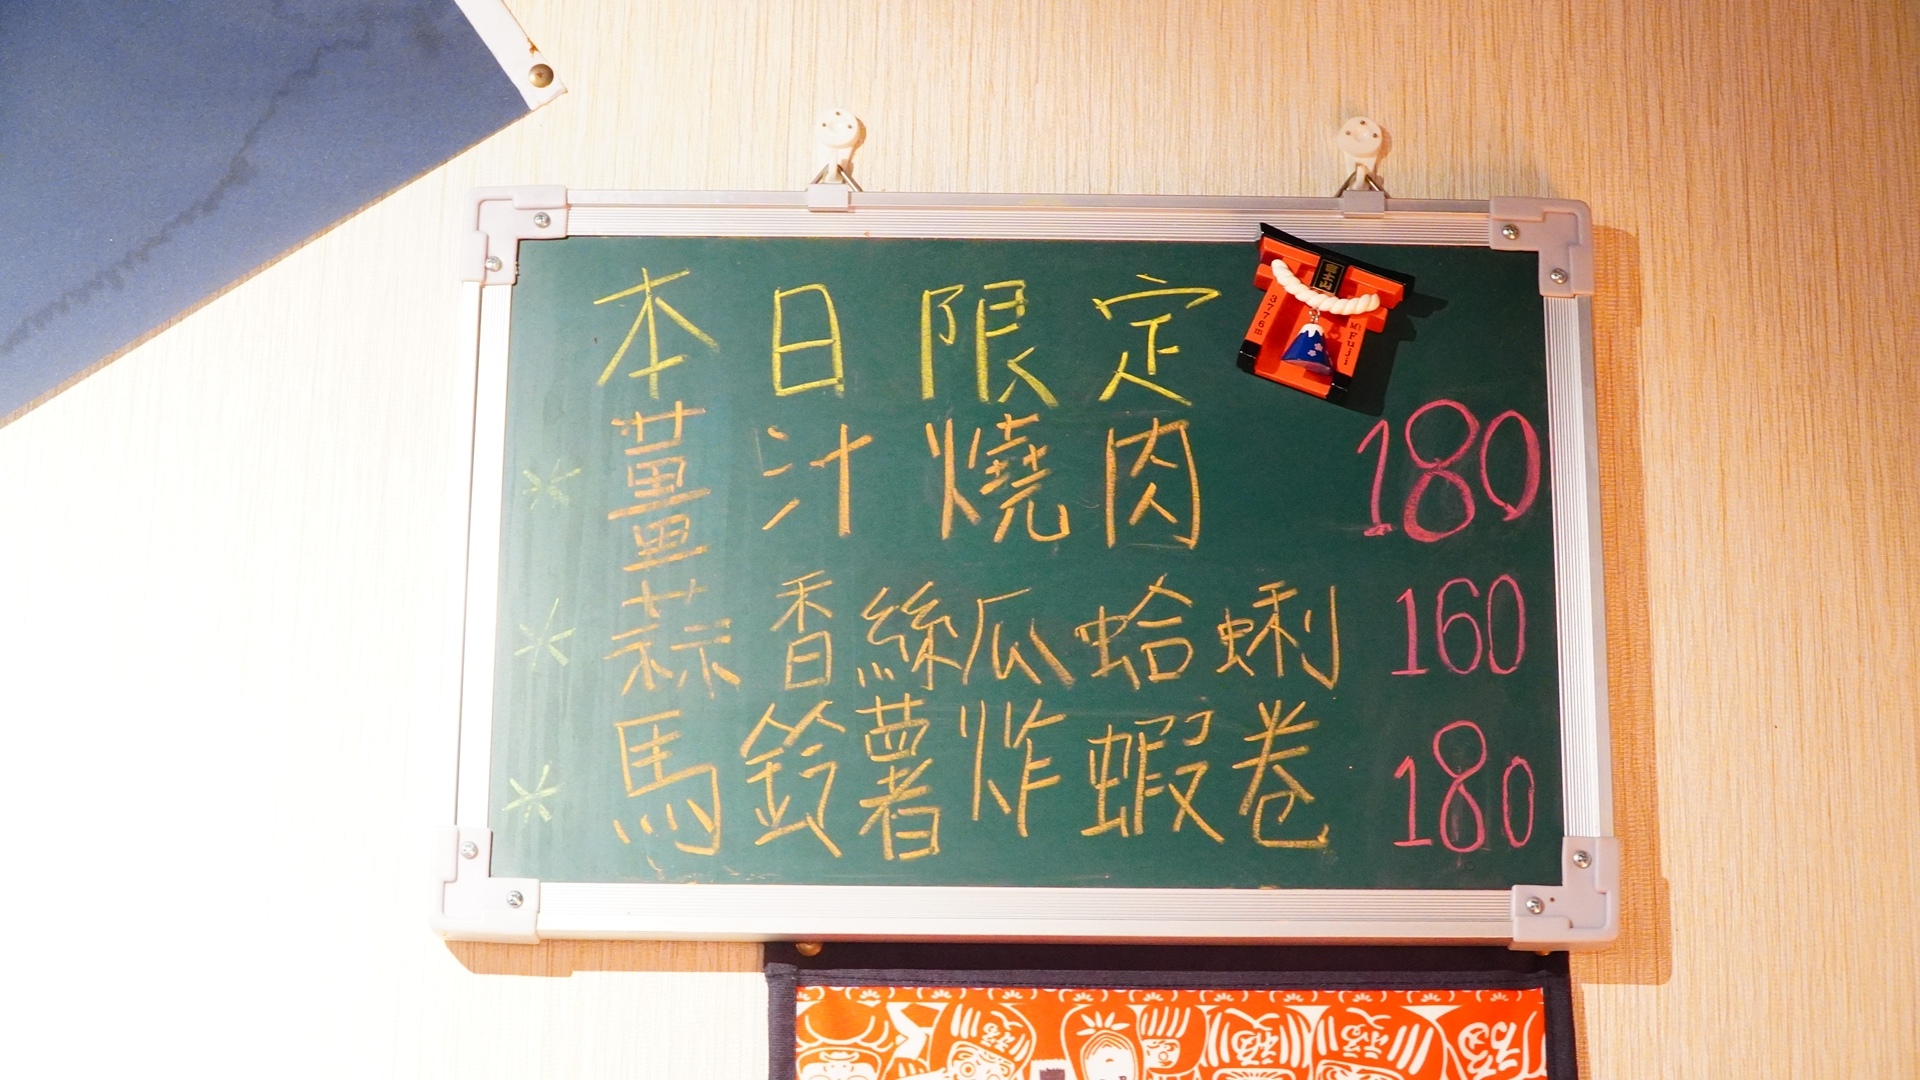 本日限定
薑汁燒肉 180
蒜香絲瓜蛤蜊 160
馬鈴薯炸蝦卷 180
富士山
3776m
Mt Fuji
福
福
福